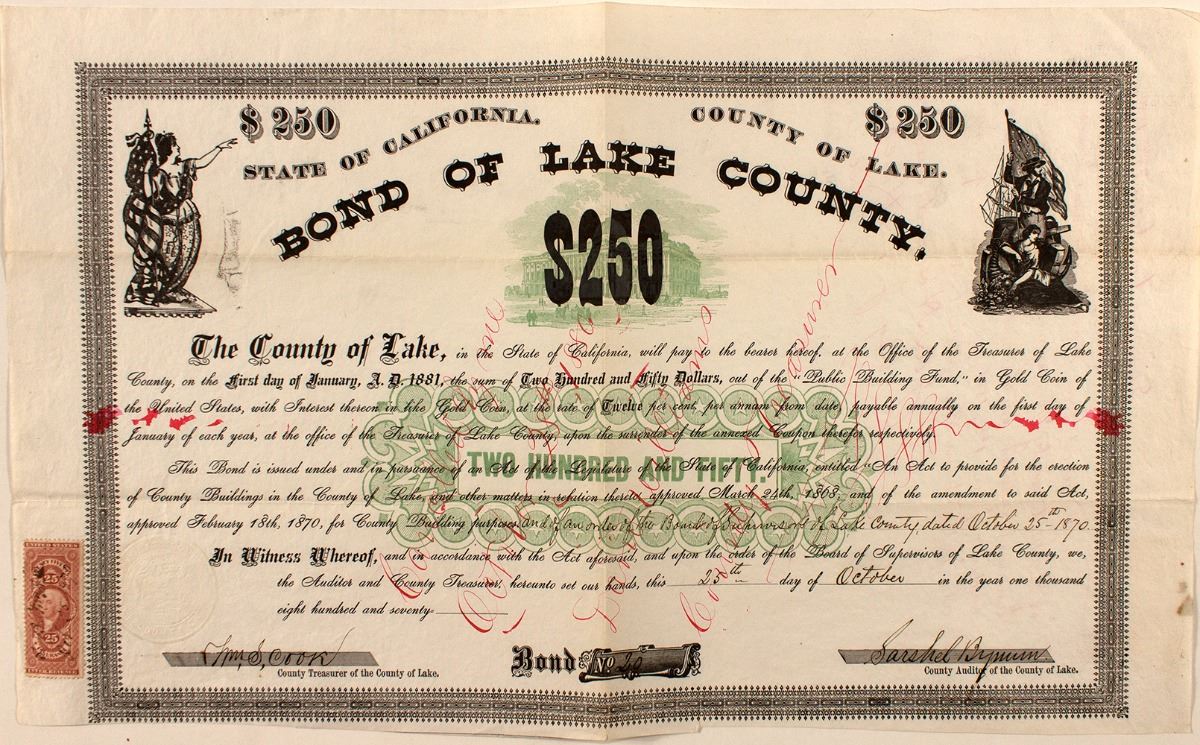 $ 250
$ 250
STATE OF CALIFORNIA.
COUNTY OF LAKE.
BOND OF LAKE COUNTY.
$250
The County of Lake, in the State of California, will pay to the bearer hereof, at the Office of the Treasurer of Lake
County, on the First day of January, A. D. 1881, the sum of Two Hundred and Fifty Dollars, out of the "Public Building Fund," in Gold Coin of
the United States, with Interest thereon in like Gold Coin, at the rate of Twelve per cent. per annum from date, payable annually on the first day of
January of each year, at the office of the Treasurer of Lake County, upon the surrender of the annexed Coupon therefor respectively.
TWO HUNDRED AND FIFTY.
This Bond is issued under and in pursuance of an Act of the Legislature of the State of California, entitled "An Act to provide for the erection
of County Buildings in the County of Lake, and other matters in relation thereto, approved March 24th, 1868, and of the amendment to said Act,
approved February 18th, 1870, for County Building purposes and of an order of the Board of Supervisors of Lake County, dated October 25th 1870.
In Witness Whereof, and in accordance with the Act aforesaid, and upon the order of the Board of Supervisors of Lake County, we,
the Auditor and County Treasurer, hereunto set our hands, this 25th day of October in the year one thousand
eight hundred and seventy
Wm S, Cook
County Treasurer of the County of Lake.
Bond No 20
Sarshel Bynum
County Auditor of the County of Lake.
25
25